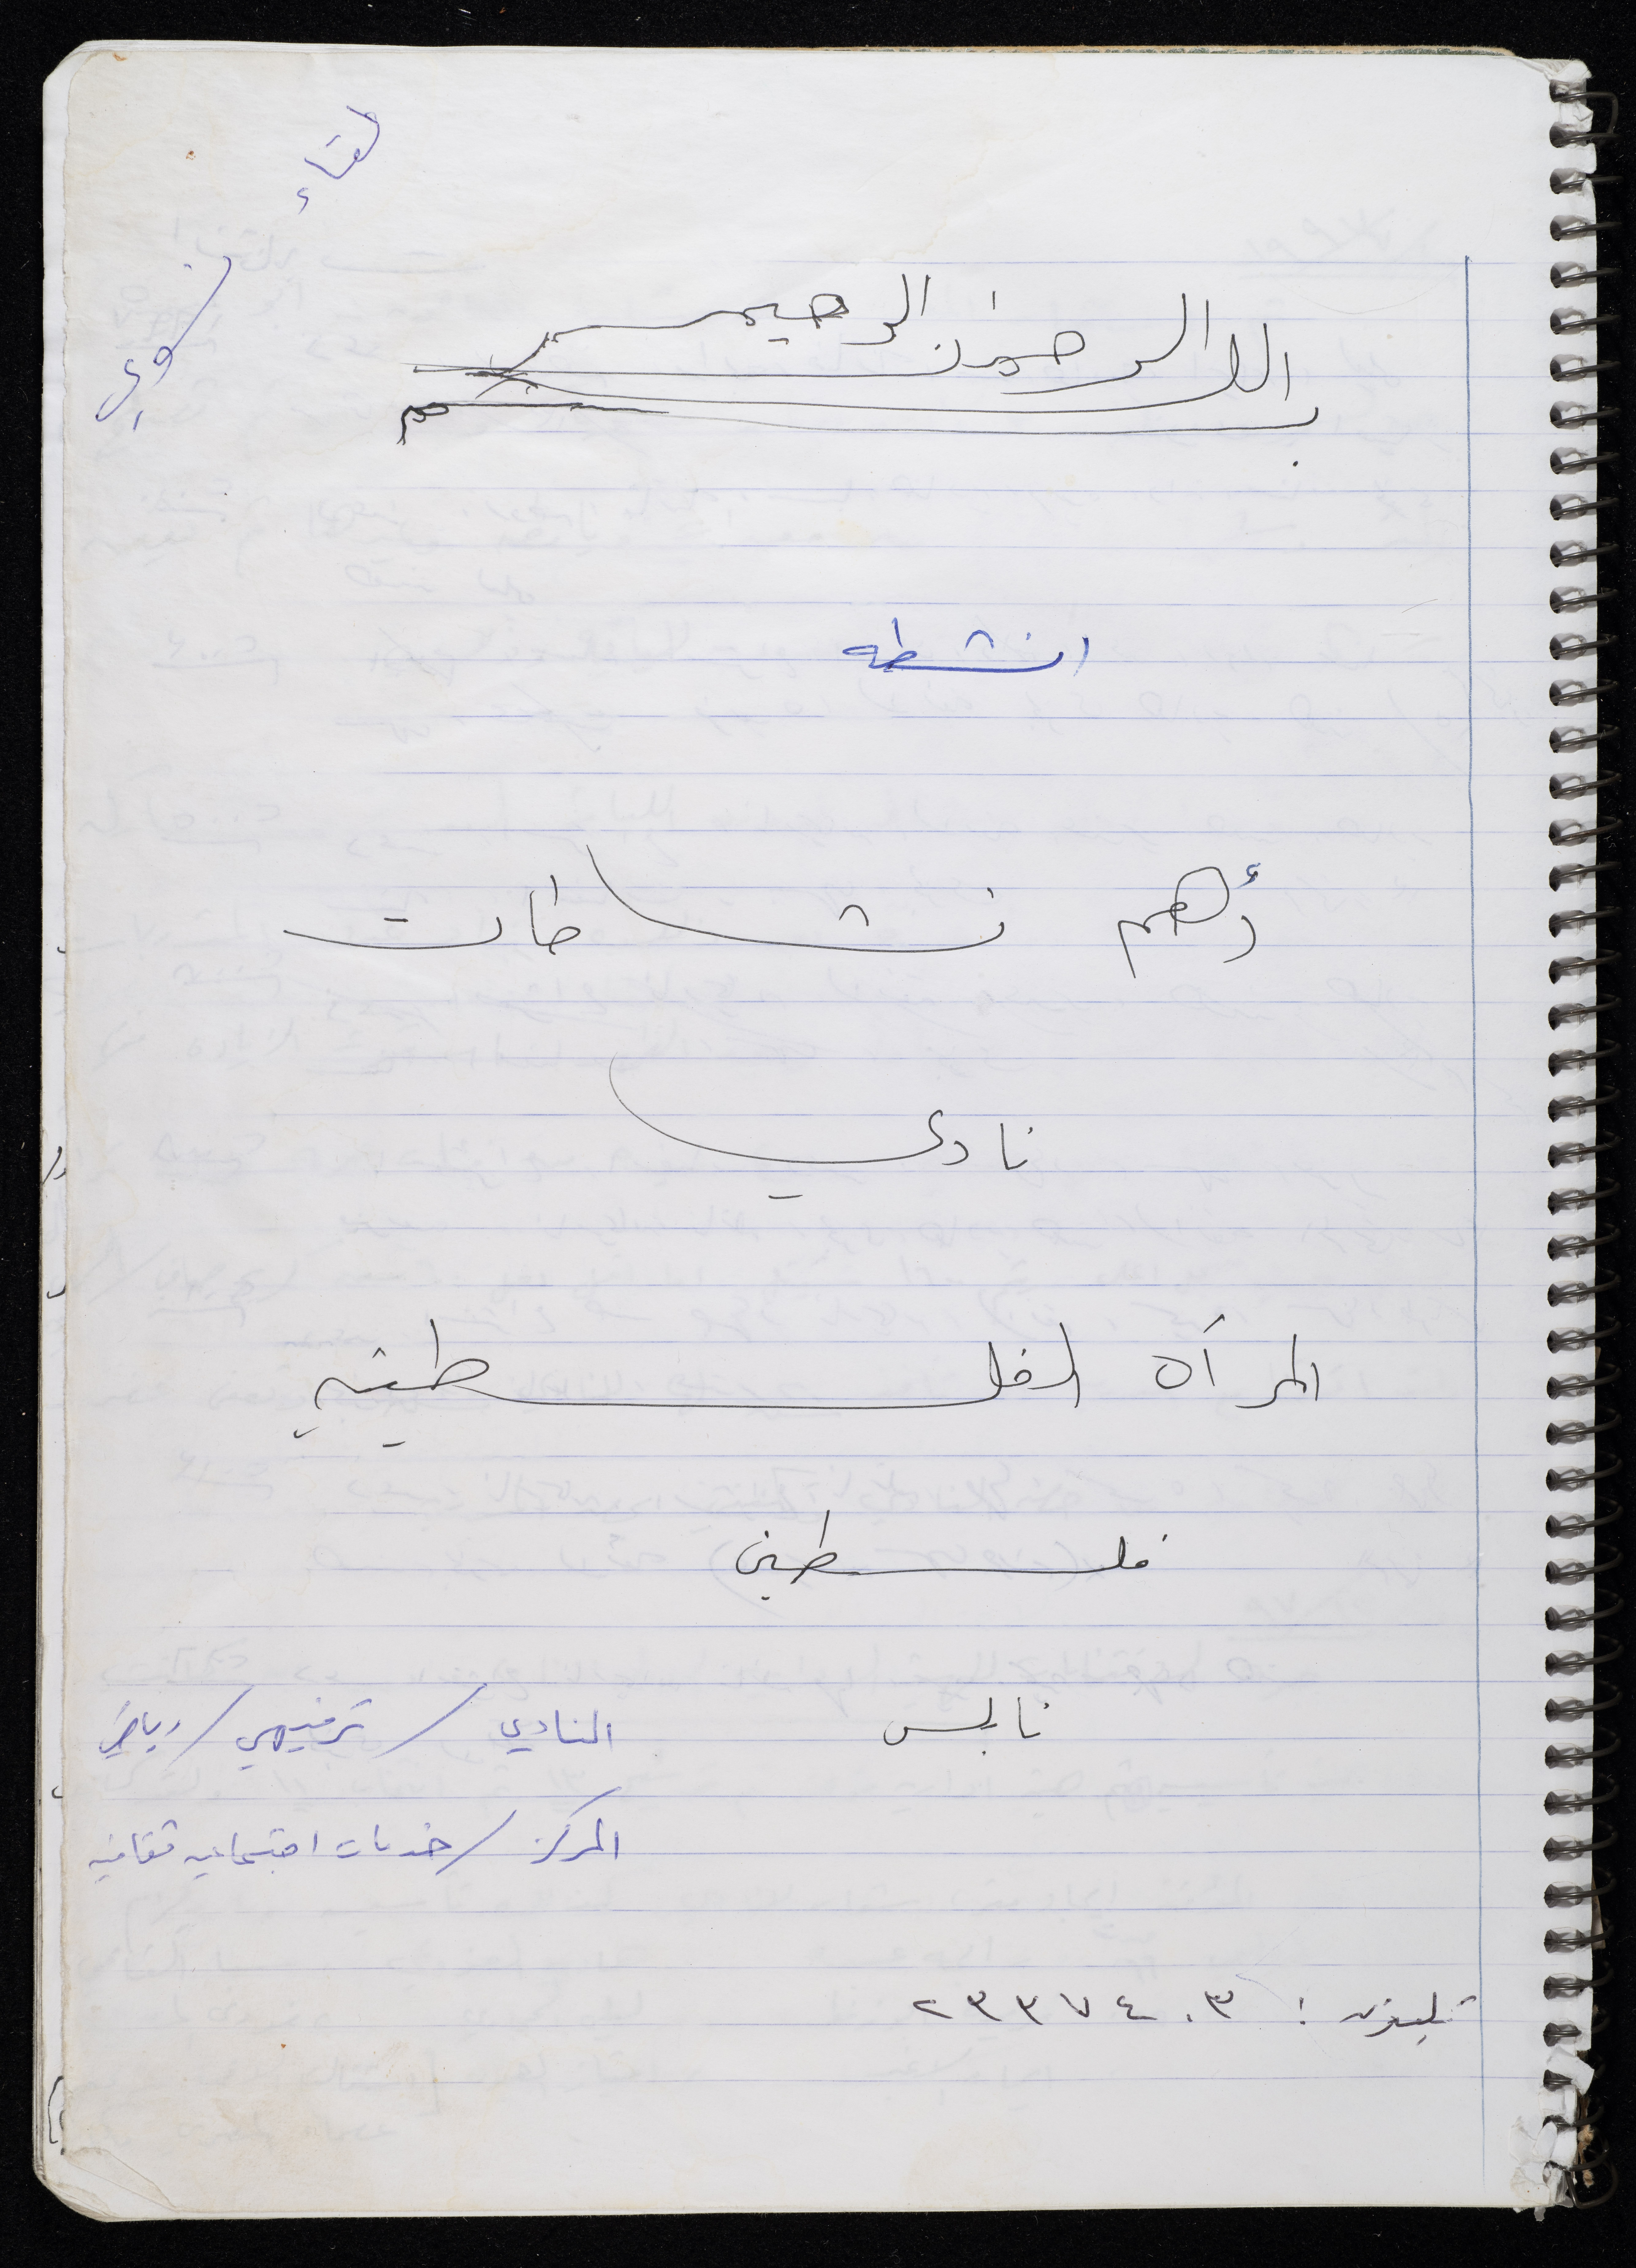 لقاء
بسم الله الرحمن الرحيم
انشطه
أهم نشاطات
نادي
المرأة الفلسطينيه
فلسطين
نابلس
النادي / ترفيهي / رياضي
المركز / خدمات اجتماعيه ثقافيه
تليفون : ٢٣٣٧٤٠٣